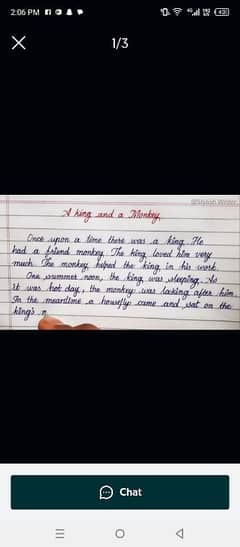 2:06 PM
1/3
@Stylish Writer
A king and a Monkey
Once upon a time there was a king. He
had a friend monkey. The king loved him very
much. The monkey helped the king in his work.
One summer noon, the king was sleeping. As
it was hot day, the monkey was taking after him.
In the meantime a housefly came and sat on the
king's
Chat